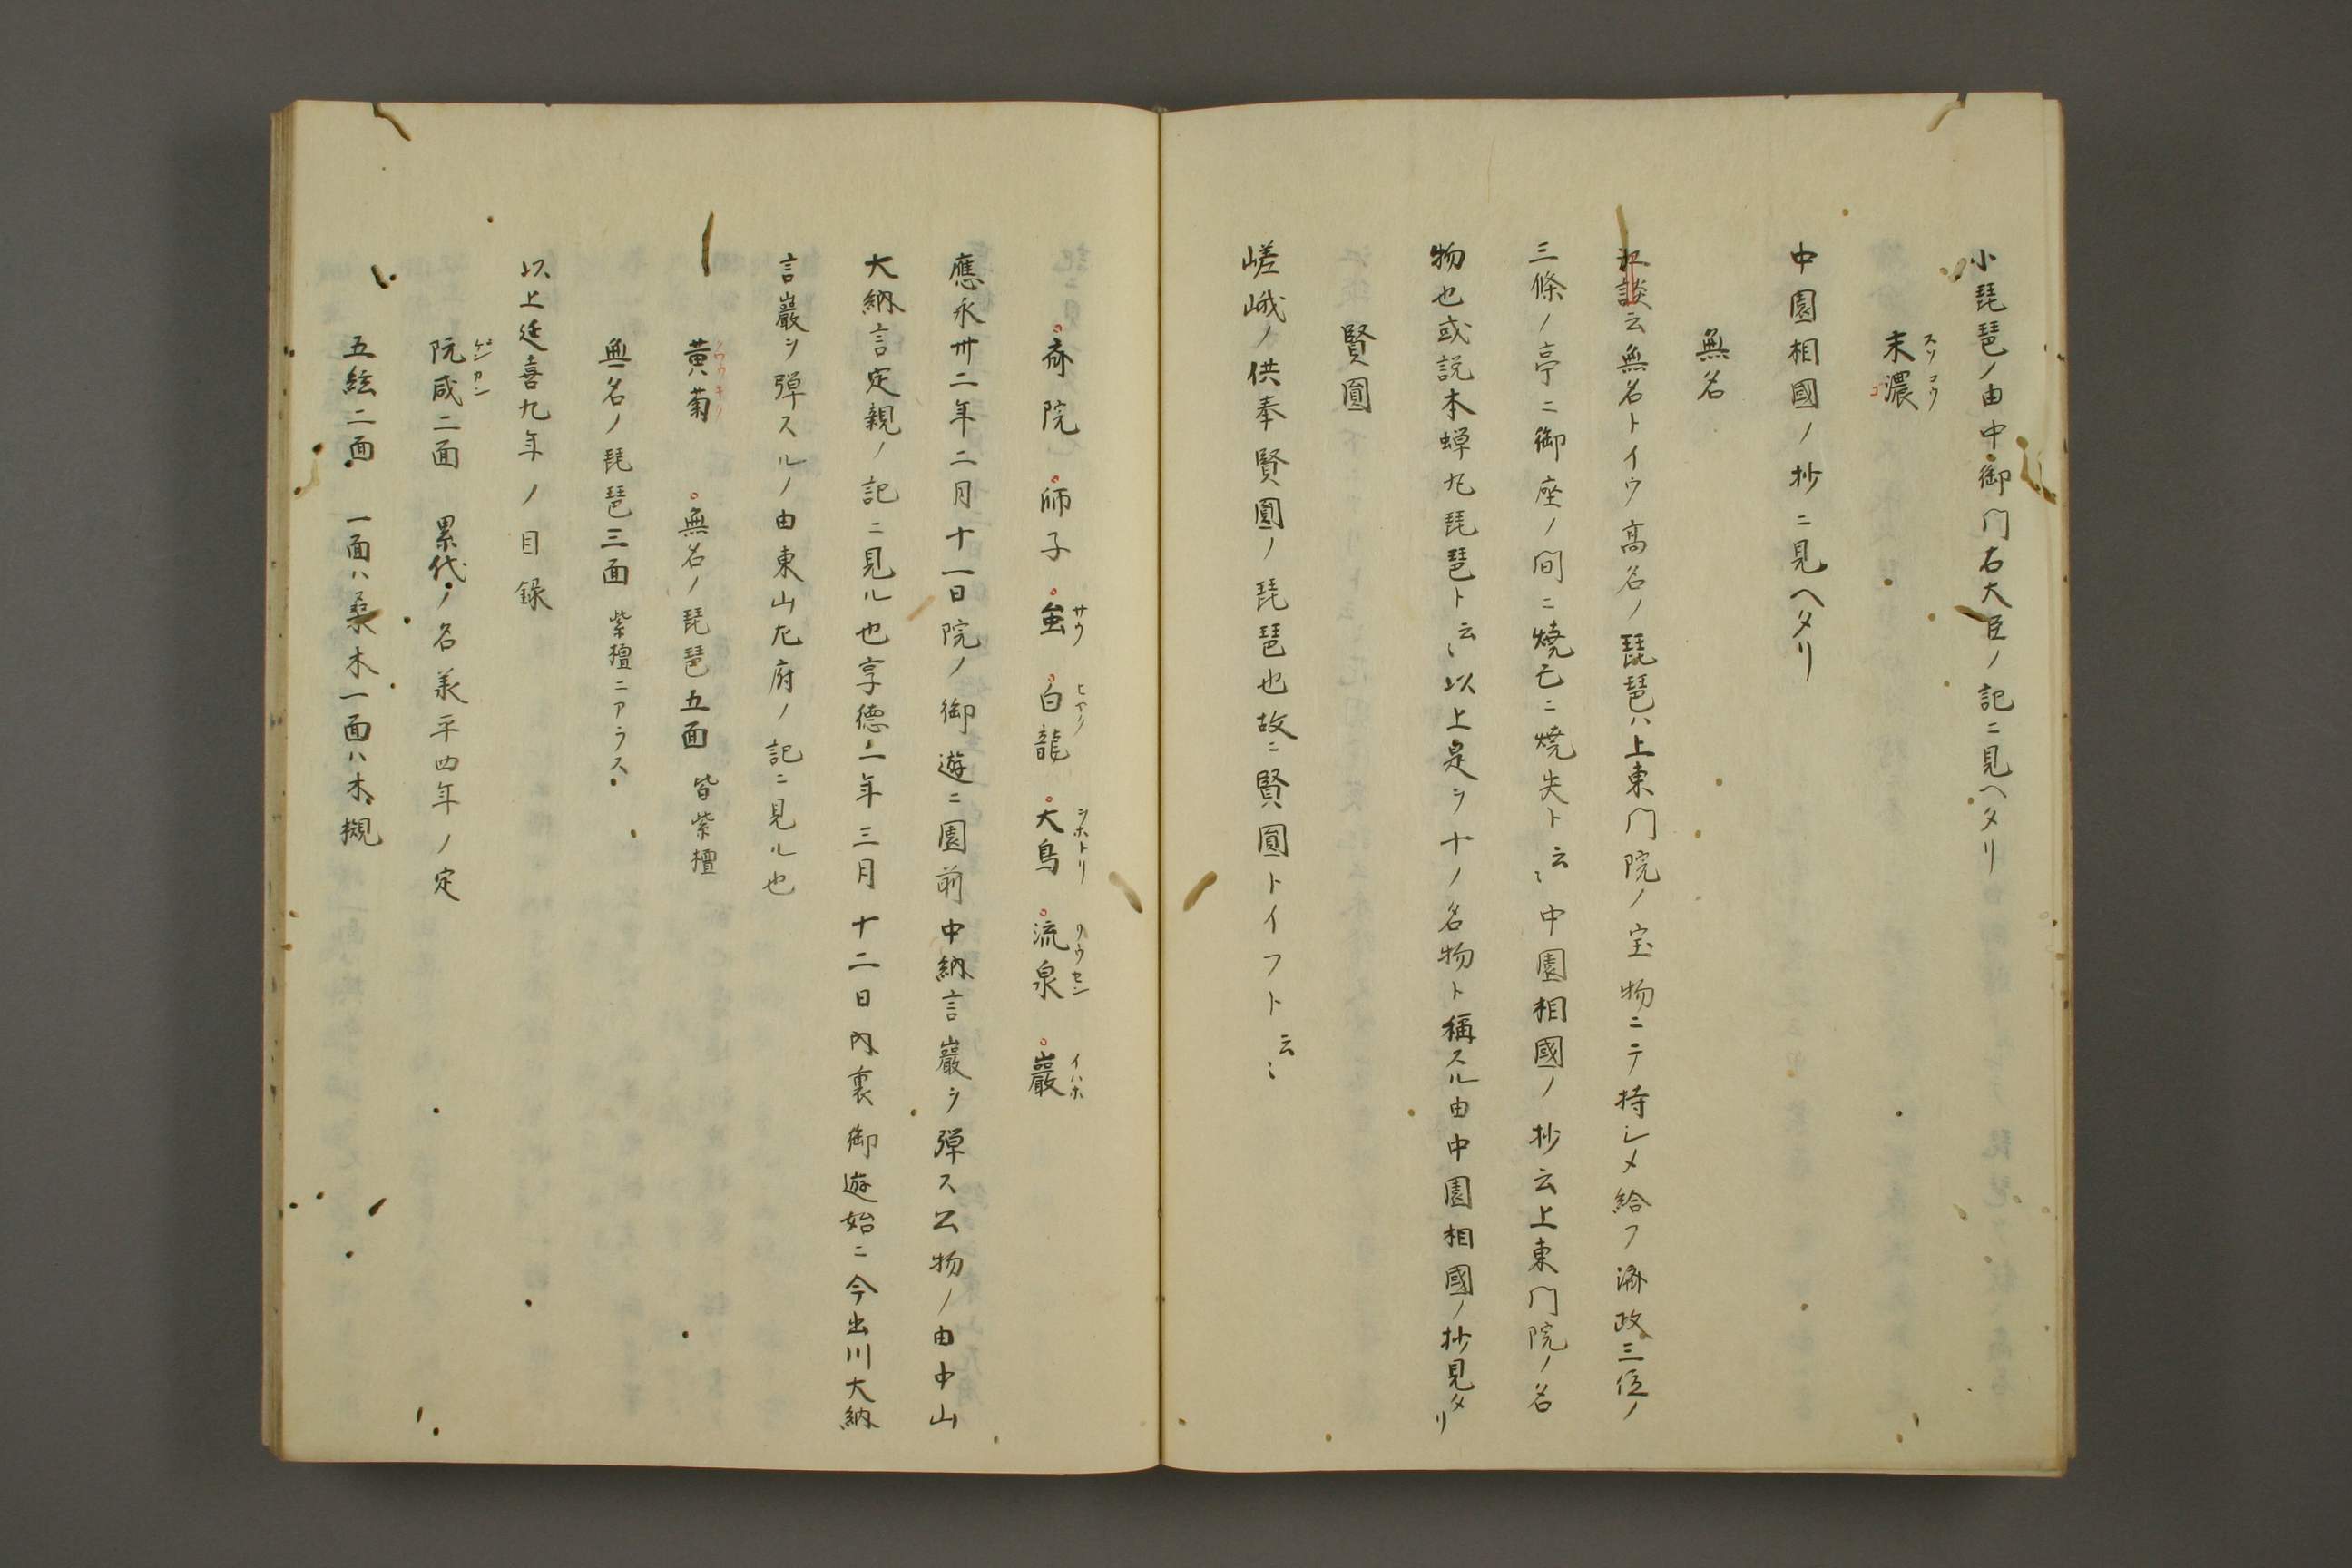 小琵琶ノ由中御門右大臣ノ記ニ見ヘタリ
末濃
スソコウ
コ
中園相國ノ抄ニ見ヘタリ
無名
江談云無名トイウ高名ノ琵琶ハ上東門院ノ宝物ニテ持レメ給フ済政三位ノ
三條ノ亭ニ御座ノ間ニ焼亡ニ焼失ト云〻中園相國ノ抄云上東門院ノ名
物也或説本蝉丸琵琶ト云〻以上是ヲ十ノ名物ト稱スル由中園相國ノ抄見タリ
賢圓
嵯峨ノ供奉賢圓ノ琵琶也故ニ賢圓トイフト云〻
斎院 師子 白龍 大鳥 流泉 巖
サウ シホトリ リウセン イハホ
應永卅二年二月十一日院ノ御遊ニ園前中納言巖ヲ弾ス公物ノ由中山
大納言定親ノ記ニ見ル也享德二年三月十二日内裏御遊始ニ今出川大納
言巖ヲ弾スルノ由東山左府ノ記ニ見ル也
黄菊 無名ノ琵琶五面 皆紫檀
無名ノ琵琶三面 紫檀ニアラス
以上延喜九年ノ目録
阮咸二面 累代ノ名 承平四年ノ定
ゲンカン
五絃二面 一面ハ桑木一面ハ木槻